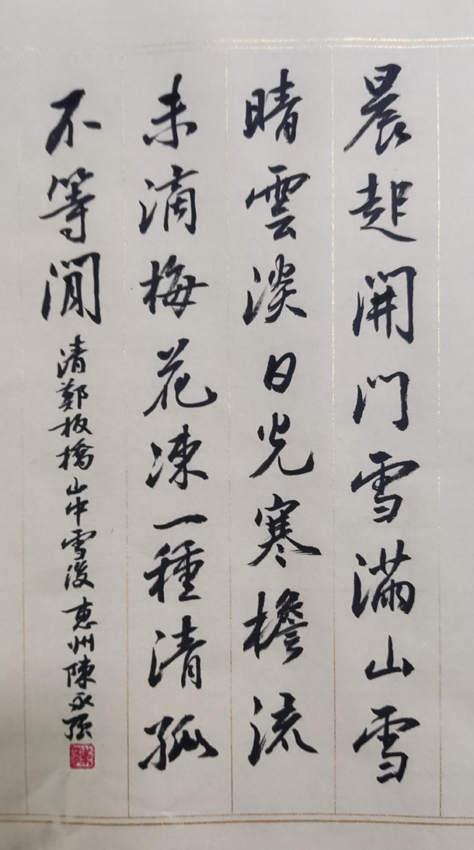 晨起開門雪滿山雪
晴雲淡日光寒檐流
未滴梅花凍一種清孤
不等閒
清鄭板橋山中雪後 惠州陳永
陳